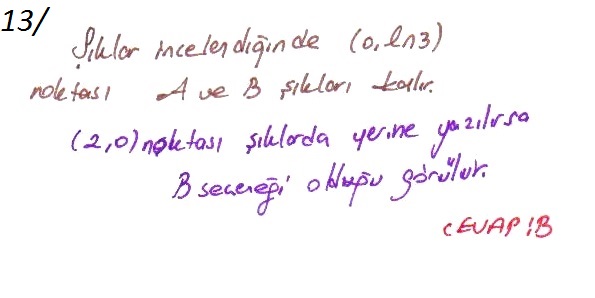 13/
Şıklar incelendiğinde (0, ln3)
noktası A ve B şıkları kalır.
(2,0) noktası şıklarda yerine yazılırsa
B seçeneği olduğu görülür.
CEVAP: B